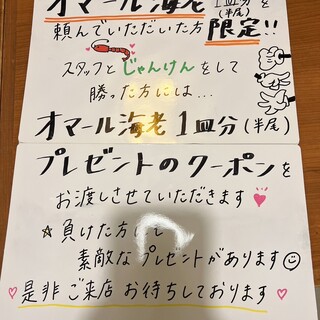 オマール海老1皿分(半尾)を
頼んでいただいた方限定!!
スタッフとじゃんけんをして
勝った方には...
オマール海老1皿分(半尾)
プレゼントのクーポンを
お渡しさせていただきます
☆負けた方にも
素敵なプレゼントがあります
是非ご来店お待ちしております